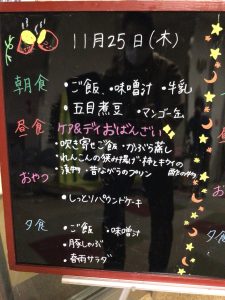 11月25日(木)
朝食 ・ご飯 ・味噌汁 ・牛乳
・五目煮豆 ・マンゴー缶
昼食 ケア&デイおばんざい
・吹き寄せご飯 ・かぶら蒸し
・れんこんの挟み揚げ ・柿と
・漬物 ・昔ながらのプリン
おやつ
・しっとりパウンドケーキ
夕食 ・ご飯 ・味噌汁
・豚しゃぶ
・春雨サラダ